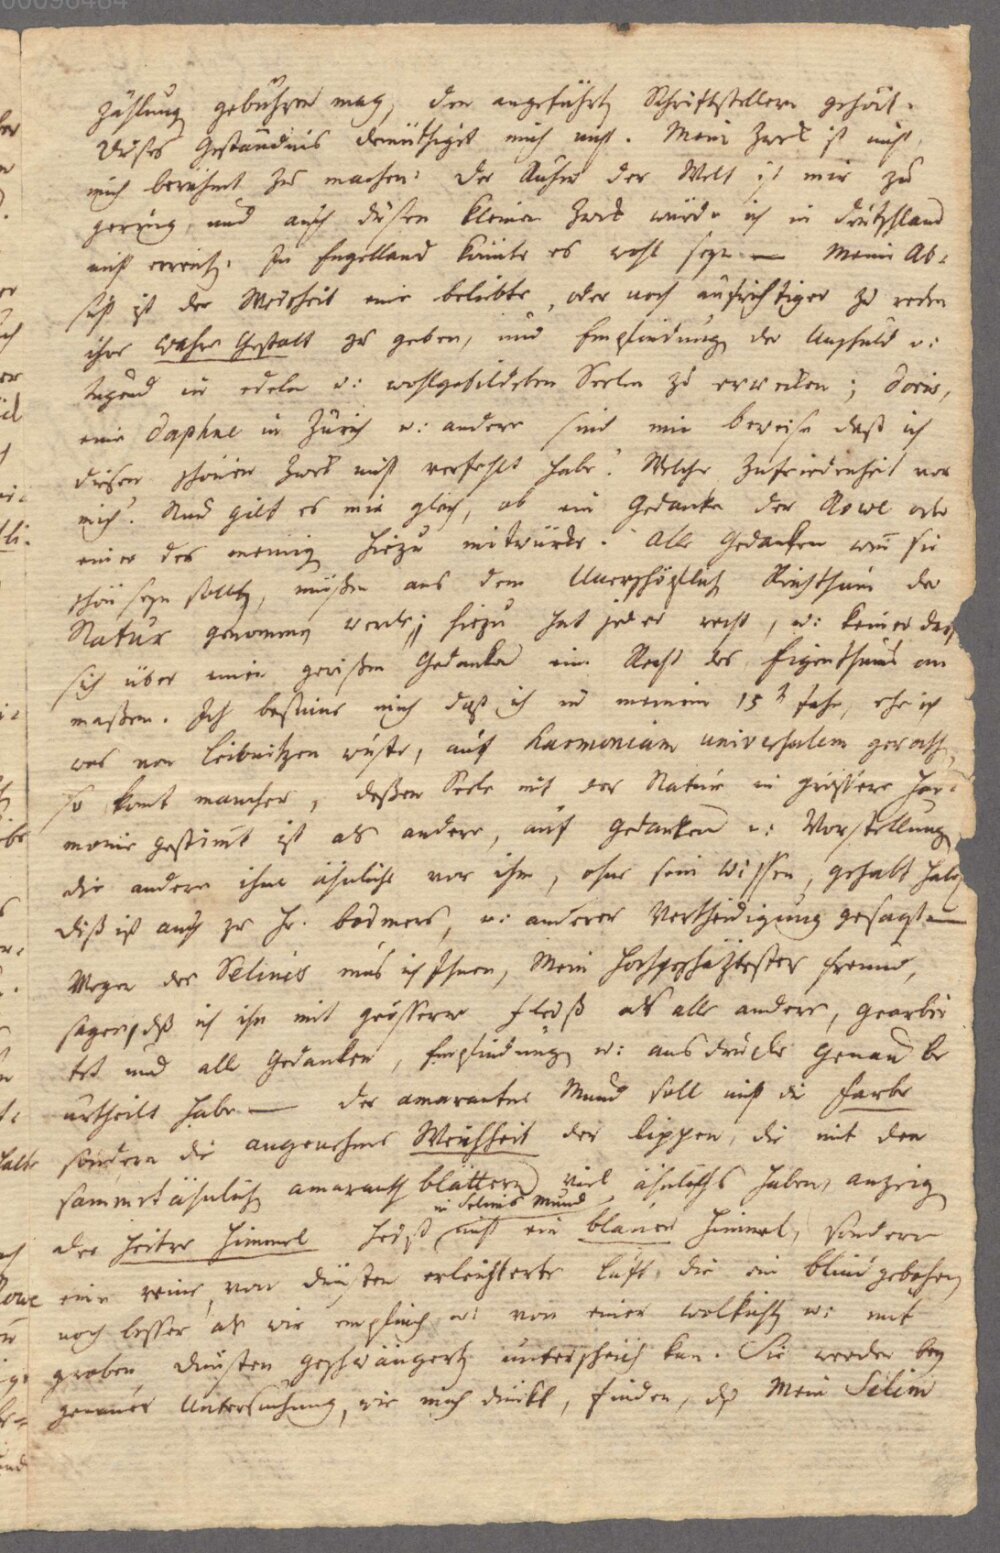 zählung gebühren mag, den angeführten Schriftstellern gehört.
Dieses Geständnis demüthiget mich nicht. Mein Zwek ist nicht,
mich berühmt zu machen: Der Ruhm der Welt ist mir zu
gering und auch diesen kleinen Zwek würde ich in Deutschland
nicht erreichen. In Engelland könnte es wohl seyn — Meine Ab-
sicht ist der Weisheit eine beliebte, oder noch aufrichtiger zu reden
ihre wahre Gestalt zu geben, und Empfindung der Unschuld u:
Tugend in edeln u: wohlgebildeten Seelen zu erweken; Doris,
eine Daphne in Zürich u: andere sind mir beweise daß ich
diesen schönen Zwek nicht verfehlt habe. Welche Zufriedenheit vor
mich! Und gilt es mir gleich, ob ein Gedanke der Rowe oder
einer des meinig hiezu mitwürke. Alle Gedanken wen sie
schön seyn sollen, müßen aus dem Unerschöpflichen Reichthum der
Natur genommen werden; hiezu hat jeder recht, u: keiner darf
sich über einen gewißen Gedanken ein Recht des Eigenthums an
maßen. Ich besinne mich daß ich in meinem 15t Jahr, ehe ich
was von Leibnitzen wuste, auf Harmoniam universalem gerathen,
so komt mancher, deßen Seele mit der Natur in größere Har-
monie gestimt ist als andere, auf Gedanken u: Vorstellungen
die andere ihm ähnliche vor ihm, ohne sein Wissen, gehabt haben
Diß ist auch zu Hr. Bodmers, u: anderer Vertheidigung gesagt —
Wegen des Selims mus ich Ihnen, Mein hochgeschäztester Freund,
sagen, daß ich ihn mit grösserm Fleiß als alle andere, gearbei
tet und alle Gedanken, Empfindungen u: ausdrüke genau be
urtheilt habe — der amarantne Mund soll nicht die Farbe
sondern die angenehme Weichheit der Lippen, die mit den
sammetähnlichen amaranth blättern viel ähnlichs haben, anzeigen
in Selims Mund
der heitre Himmel heißt nicht ein blauer Himmel, sondern
eine reine, von dünsten erleichterte Luft, die ein blind gebohrner
noch besser als wir empfindt u: von einer wolkicht u: mit
groben dünsten geschwängerten unterscheiden kan. Sie werden bey
genauer Untersuchung, wie mich dünkt, finden, daß Mein Selim